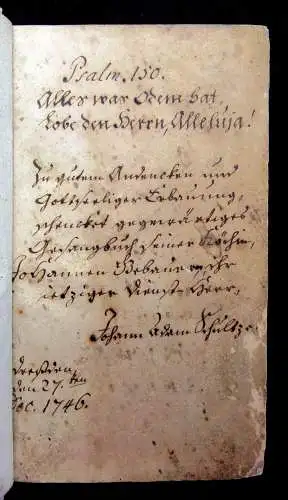 Psalm. 150.
Alles was Odem hat,
Lobe den Herrn, Alleluja!
Zu gutem Andencken und
Gottseeliger Erbauung,
schencket gegenwärtiges
Gesangbuch seiner Köchin,
Johannen Gebauern ihr
ietziger Dienst-Herr,
Johann Adam Schultze.
Dreßden,
den 27.ten
Dec. 1746.